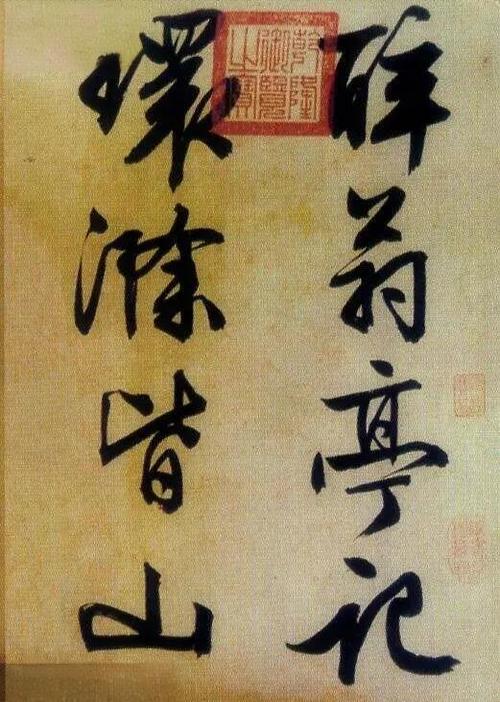 醉翁亭記
環滁皆山
乾隆御覽之寶